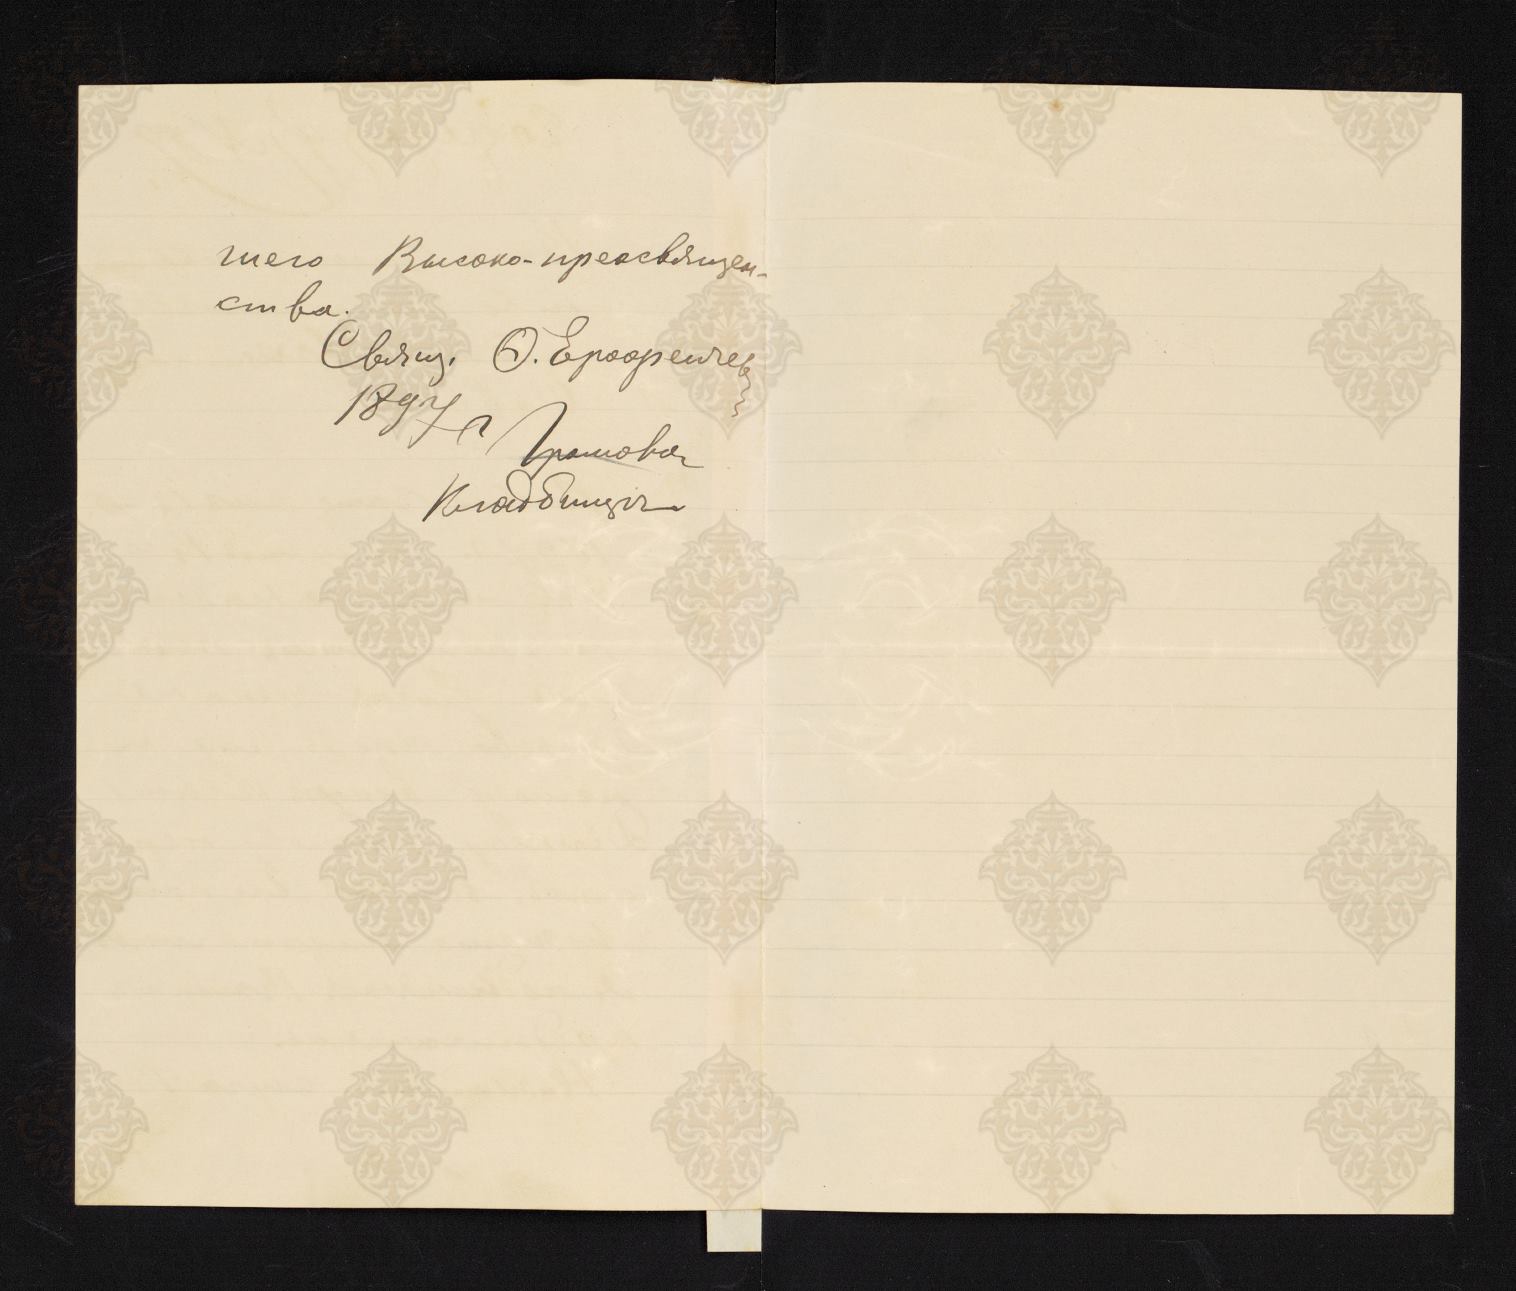 шего Высоко-преосвящен-
ства.
Свящ. Ѳ. Ерофеичев
1897 г
Кладбищ